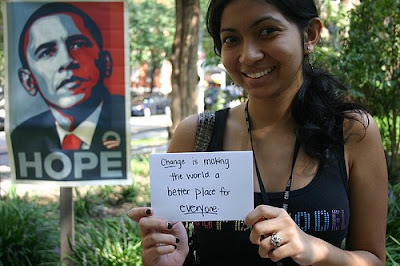 HOPE
Change is making
the world a
better place for
everyone.